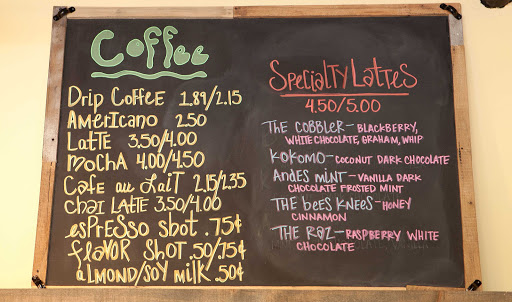 Coffee
Drip Coffee 1.89/2.15
Americano 2.50
Latte 3.50/4.00
Mocha 4.00/4.50
Cafe au Lait 2.15/2.35
Chai Latte 3.50/4.00
espresso shot .75¢
flavor shot .50/.75¢
almond/soy milk .50¢
Specialty Lattes
4.50/5.00
The Cobbler - Blackberry,
White Chocolate, Graham, Whip
Kokomo - Coconut Dark Chocolate
Andes Mint - Vanilla Dark
Chocolate Frosted Mint
The Bees Knees - Honey
Cinnamon
The Raz - Raspberry White
Chocolate